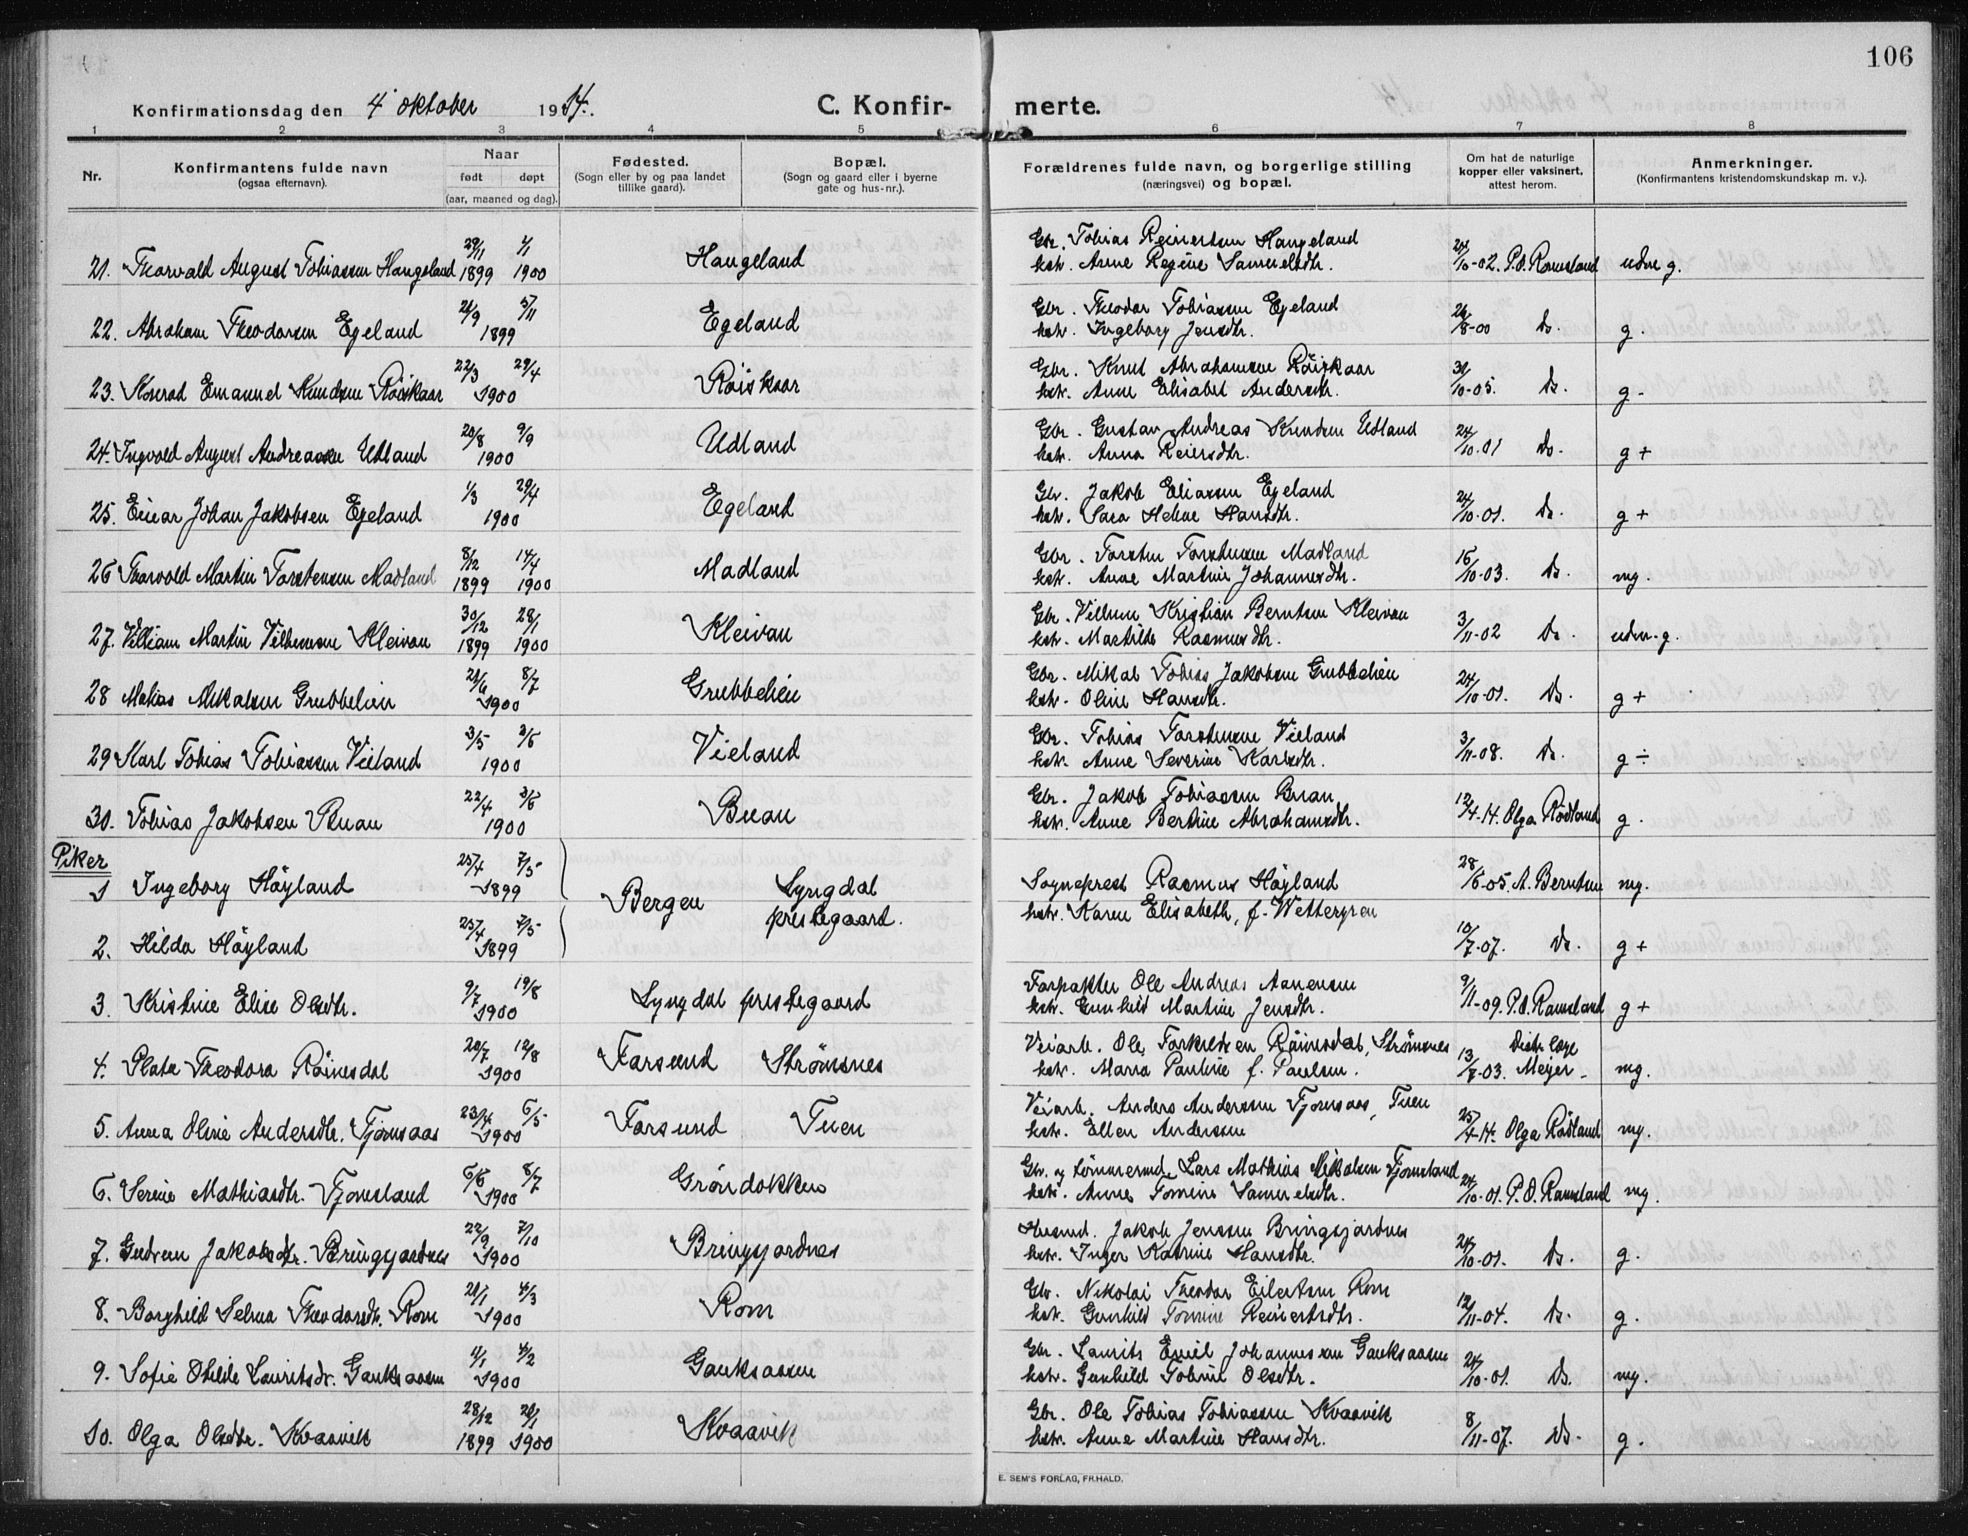 106
Konfirmationsdag den 4 oktober 1914.
C. Konfirmerte.
1 2 3 4 5 6 7 8
Nr.
Konfirmantens fulde navn
(ogsaa efternavn).
Naar
født døpt
(aar, maaned og dag).
Fødested.
(Sogn eller by og paa landet
tillike gaard).
Bopæl.
(Sogn og gaard eller i byerne
gate og hus-nr.).
Forældrenes fulde navn, og borgerlige stilling
(næringsvei) og bopæl.
Om hat de naturlige
kopper eller vaksinert,
attest herom.
Anmerkninger.
(Konfirmantens kristendomskundskap m. v.).
29/11 4/1 Gbr. Tobias Reinertsen Hangeland
21. Thorvald August Tobiassen Hangeland 1899 1900 Hangeland hstr. Anne Regine Samuelsdtr. 24/10-02. P.O. Ramsland udm g.
Gbr. Theodor Tobiassen Egeland
22. Abraham Theodorsen Egeland 1899 Egeland hstr. Ingeborg Jensdtr. 8-00 Do. g.
22/3 29/4 Gbr. Knut Abrahamsen Röiskaar
23. Konrad Emanuel Knudsen Röiskaar 1900 Röiskaar hstr. Anne Elisabet Andersdtr. 10-05. Do. g -
20/8 9/9 Gbr. Gustav Andreas Knudsen Udland
24. Ingvald August Andreassen Udland 1900 Udland hstr. Anna Reiersdtr. 24/10-01 Do. g +
1/3 29/4 Gbr. Jakob Eliassen Egeland
25. Einar Johan Jakobsen Egeland 1900 Egeland hstr. Sara Helene Hansdtr. 24/10-01. Do. g +
8/12 14/4 Gbr. Torsten Torstensen Madland
26 Thorvald Martin Torstensen Madland 1899 1900 Madland hstr. Anne Martine Johannesdtr. 16/10-03. Do. mg.
30/12 28/1 Gbr. Vilhem Kristian Berntsen Kleivan
27. Villiam Martin Vilhemsen Kleivan 1899 1900 Kleivan hstr. Martilde Rasmusdtr. 3/11-02 Do. udm.g.
21/6 8/7 Gbr. Mikal Tobias Jakobsen Grubbelien
28 Matias Mikalsen Grubbelien 1900 Grubbelien hstr. Oline Hansdtr. 24/10-01. Do. g +
3/5 3/6 Gbr. Tobias Torstensen Vieland
29 Karl Tobias Tobiassen Vieland 1900 Vieland hstr. Anne Severine Karlsdtr. 3/11-08. Do. g ÷
22/4 3/6 Gbr. Jakob Tobiassen Buan
30. Tobias Jakobsen Buan 1900 Buan hstr. Anne Bertine Abrahamsdtr. 12/4-14. Olga Rödland g.
Piker
1 Ingeborg Höyland 25/4 7/5 1899 Bergen Lyngdal prestegaard. Sogneprest Rasmus Höyland 28/6-05. A. Berntsen mg.
hstr. Karen Elisabeth, f. Wettergren
2. Hilda Höyland 25/4 7/5 1899 10/7-07. Do. g +
9/7 19/8 Forpakter Ole Andreas Aanensen
3. Kristine Elise Olsdtr. 1900 Lyngdal prestegaard hstr. Gunhild Martine Jensdtr. 9/11-09. P.O. Ramsland g +
20/7 12/8 Veiarb. Ole Torkildsen Röinesdal, Strömsnes
4. Plata Theodora Röinesdal 1900 Farsund Strömsnes hstr. Maria Pauline f. Paulsen. 13/7-03. Distr. læge Meyer mg.
23/4 6/5 Veiarb. Anders Andersen Tjomsaas, Tuen
5. Anna Oline Andersdtr. Tjomsaas 1900 Farsund Tuen hstr. Ellen Andersen 25/4-14. Olga Rödland mg.
6/6 8/7 Gbr. og tömmermd. Lars Mathias Mikalsen Tjomsland
6. Serine Mathiasdtr. Tjomsland 1900 Gröndokken hstr. Anne Tomine Samuelsdtr. 24/10-01. P.O. Ramsland mg.
22/9 7/10 Husmd. Jakob Jenssen Bringsjordnes
7. Gudrun Jakobsdtr. Bringsjordnes 1900 Bringsjordnes hstr. Inger Katrine Hansdtr. 24/10-01. Do. g.
21/1 4/3 Gbr. Nikolai Theodor Eilertsen Rom
8. Borghild Selma Theodorsdtr. Rom 1900 Rom hstr. Gunhild Tomine Reinertsdtr. 12/11-04. Do. g.
4/1 4/2 Gbr. Laurits Emil Johannessen Gauksaasen
9. Sofie Otilde Lauritsdr. Gauksaasen 1900 Gauksaasen hstr. Gunhild Tobine Olsdtr. 24/10-01. Do. mg.
28/12 20/1 Gbr. Ole Tobias Tobiassen Kvaavik
10. Olga Olsdtr. Kvaavik 1899 1900 Kvaavik hstr. Anne Martine Hansdtr. 8/11-07. Do. g.
E. SEM'S FORLAG, FR.HALD.